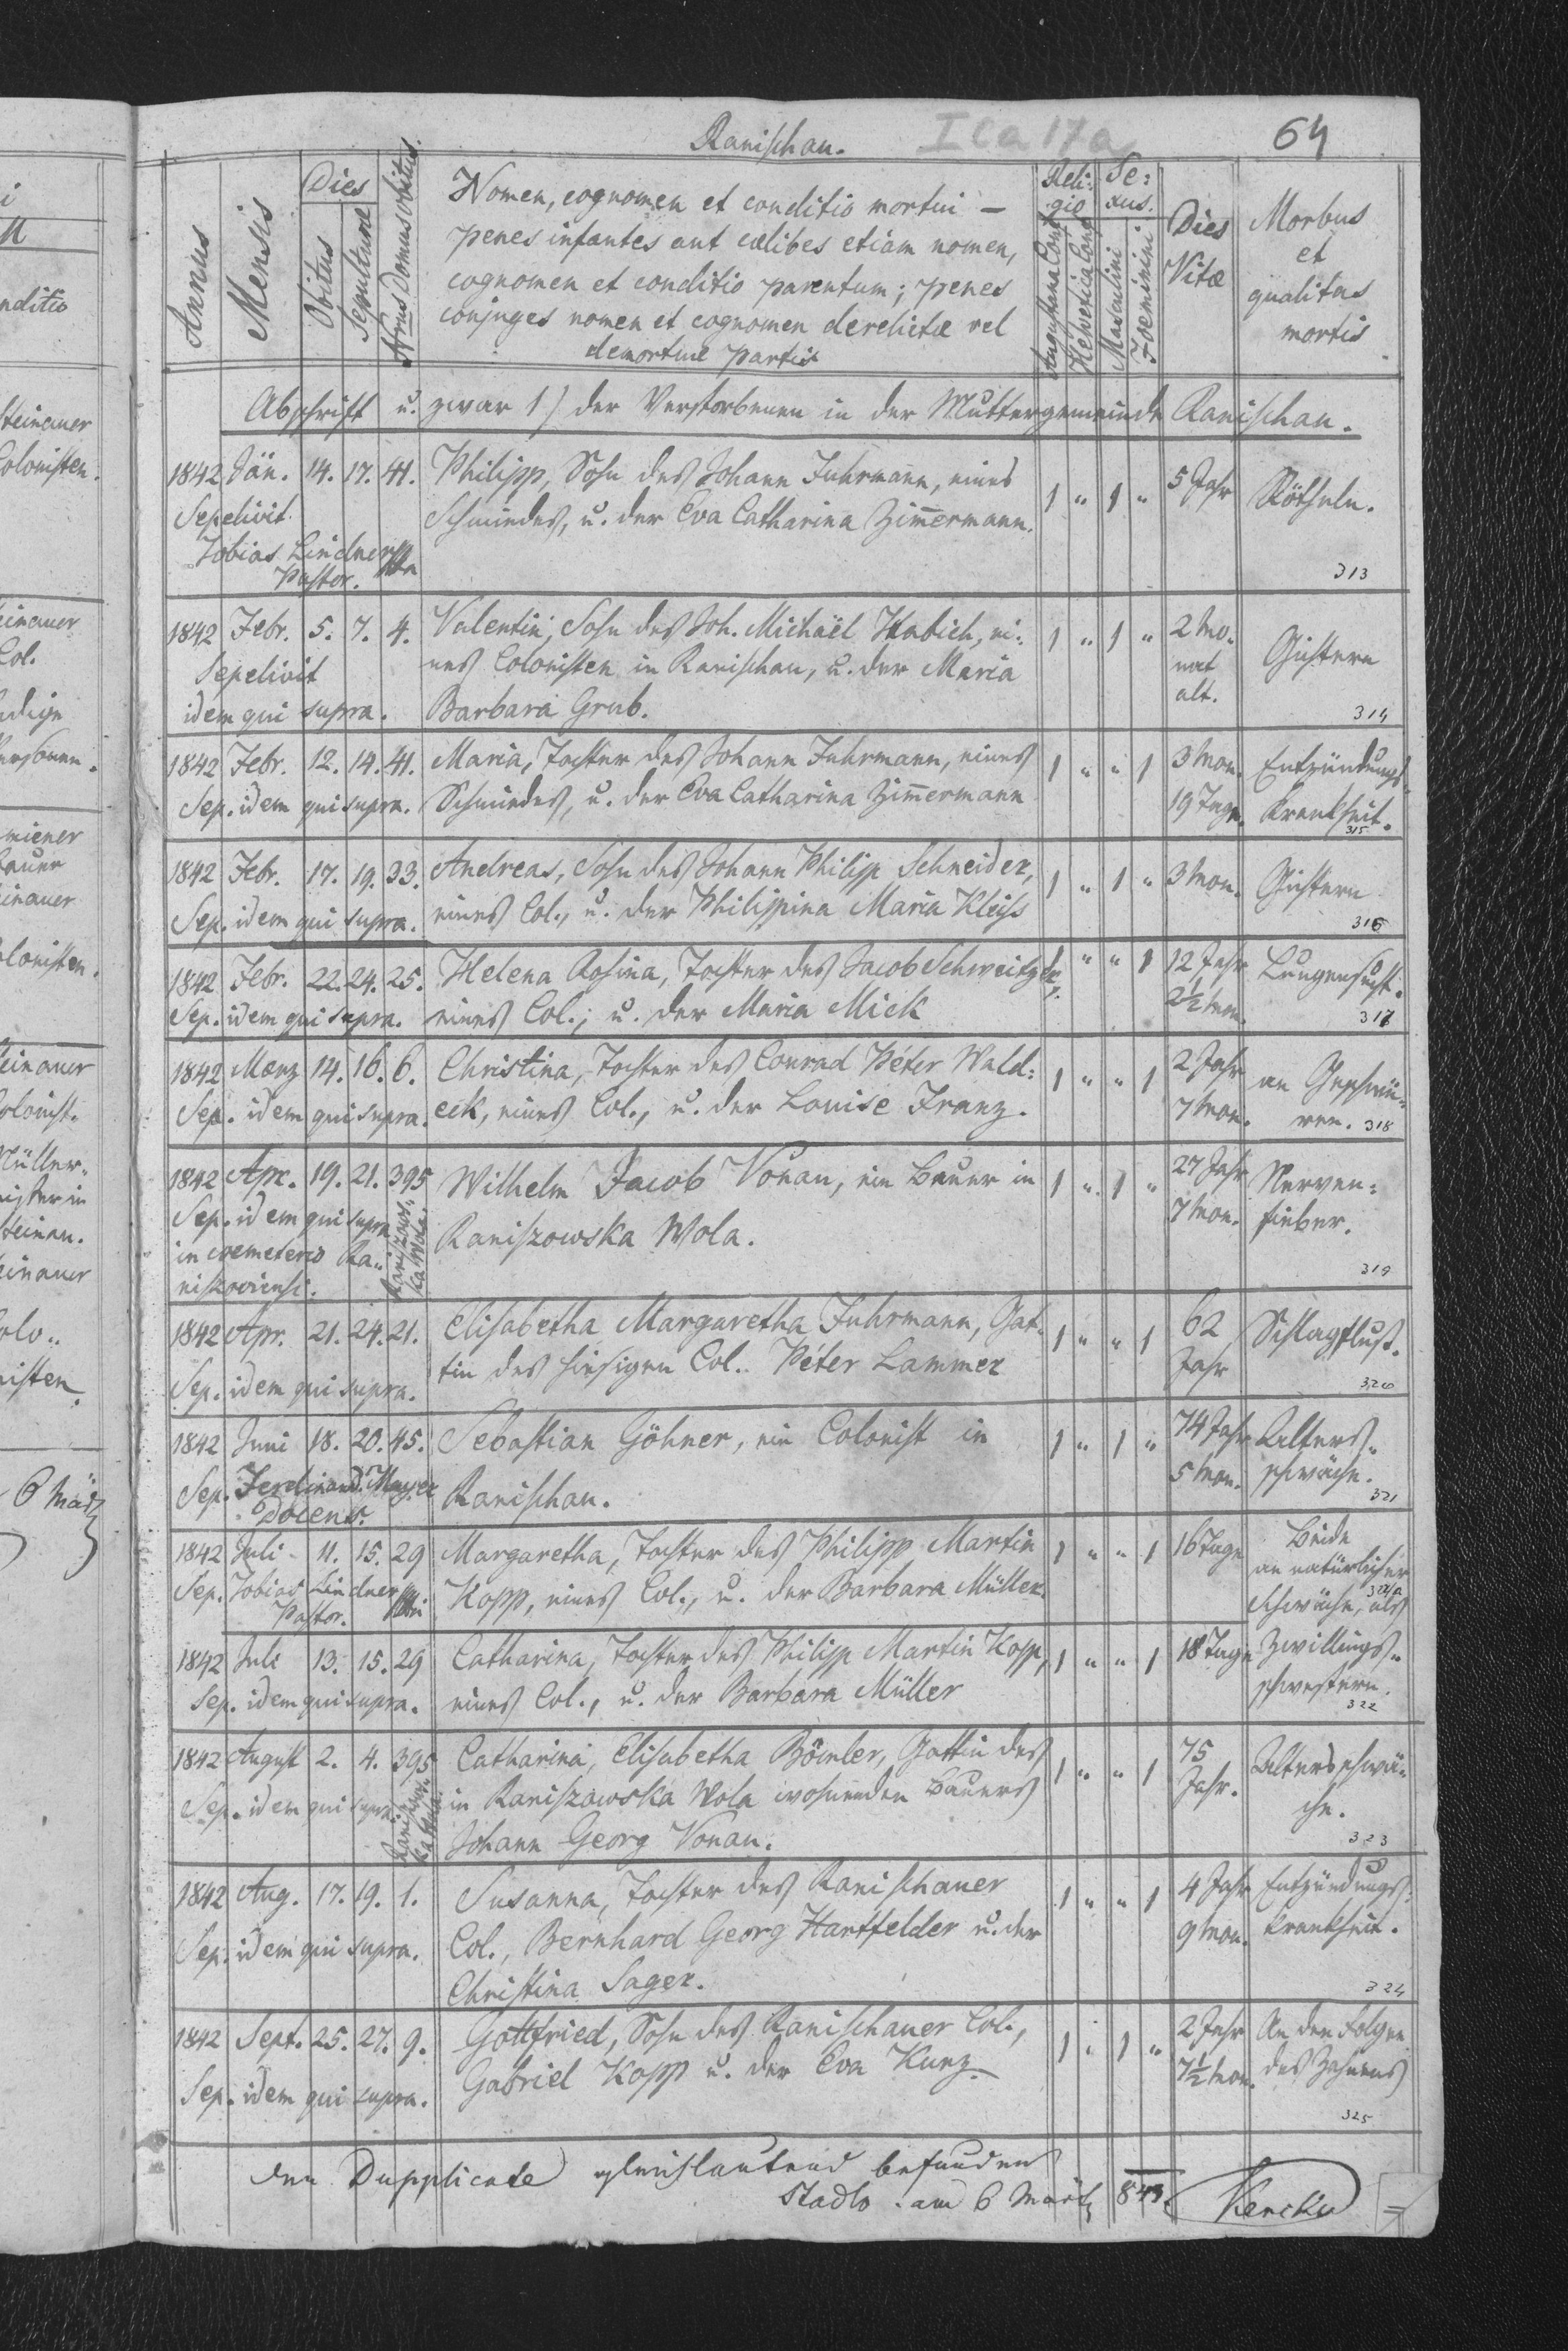 Ranischau.
I Ca 17a
64
Annus
Mensis
Dies
Obitus
Sepulturae
Nrus Domus obitus
Nomen, cognomen et conditio mortui —
penes infantes aut cælibes etiam nomen,
cognomen et conditio parentum; penes
conjuges nomen et cognomen derelictæ vel
demortuæ partis
Reli:
gio
Augustana Conf
Helvetica Conf
Se:
xus.
Masculini
Foeminini
Dies
Vitæ
Morbus
et
qualitas
mortis
Abschrift u. zwar 1) der Verstorbenen in der Muttergemeinde Ranischau.
1842 Jän. 14. 17. 41. Philipp, Sohn des Johann Fuhrmann, eines 1 " 1 " 5 Jahr Rötheln.
Sepelivit Schmiedes, u. der Eva Catharina Zimmermann.
Tobias Lindner
Pastor. 313
1842 Febr. 5. 7. 4. Valentin, Sohn des Joh. Michaël Habich, ei: 1 " 1 " 2 Mo: Gichtern
Sepelivit nes Colonisten in Ranischau, u. der Maria nat
idem qui supra. Barbara Grub. alt. 314
1842 Febr. 12. 14. 41. Maria, Tochter des Johann Fuhrmann, eines 1 " " 1 3 Mon. Entzündungs-
Sep. idem qui supra. Schmiedes, u. der Eva Catharina Zimmermann 19 Tage. krankheit. 315
1842 Febr. 17. 19. 33. Andreas, Sohn des Johann Philipp Schneider, 1 " 1 " 3 Mon. Gichtern
Sep. idem qui supra. eines Col., u. der Philippina Maria Kleiss 316
1842 Febr. 22. 24. 25. Helena Rosina, Tochter des Jacob Schweitzer, 1 " " 1 12 Jahr Lungensucht.
Sep. idem qui supra. eines Col., u. der Maria Mick 2½ Mon. 317
1842 Mærz 14. 16. 6. Christina, Tochter des Conrad Péter Wald: 1 " " 1 2 Jahr an Geschwü:
Sep. idem qui supra. eck, eines Col., u. der Louise Franz. 7 Mon. ren. 318
1842 Apr. 19. 21. 395 Wilhelm Jacob Vonau, ein Bauer in 1 " 1 " 27 Jahr Nerven:
Sep. idem qui supra Raniszows: ka Wola. Raniszowska Wola. 7 Mon. fieber.
in coemeterio Ra:
niszoviensi. 319
1842 Apr. 21. 24. 21. Elisabetha Margaretha Fuhrmann, Gat: 1 " " 1 62 Schlagfluß.
Sep. idem qui supra. tin des hiesigen Col. Péter Lammer Jahr 320
1842 Juni 18. 20. 45. Sebastian Göhner, ein Colonist in 1 " 1 " 74 Jahr Alters:
Sep. Ferdinand Mayer Ranischau. 5 Mon. schwäche.
Docens. 321
1842 Juli 11. 15. 29 Margaretha, Tochter des Philipp Martin 1 " " 1 16 Tage Beide
Sep. Tobias Lindner Kopp, eines Col., u. der Barbara Müller. an natürlicher
Pastor. Schwäche, als
1842 Juli 13. 15. 29 Catharina, Tochter des Philipp Martin Kopp, 1 " " 1 18 Tage Zwillings:
Sep. idem qui supra. eines Col., u. der Barbara Müller schwestern.
322
1842 August 2. 4. 395 Catharina, Elisabetha Bömler, Gattin des 1 " " 1 75 Altersschwä:
Sep. idem qui supra. Raniszows: ka Wola. in Raniszowska Wola wohnenden Bauers Jahr. che.
Johann Georg Vonau. 323
1842 Aug. 17. 19. 1. Susanna, Tochter des Ranischauer 1 " " 1 4 Jahr Entzündungs:
Sep. idem qui supra. Col., Bernhard Georg Hartfelder u. der 9 Mon. krankheit.
Christina Sager. 324
1842 Sept. 25. 27. 9. Gottfried, Sohn des Ranischauer Col., 1 " 1 " 2 Jahr An den Folgen
Sep. idem qui supra. Gabriel Kopp u. der Eva Kunz. 7½ Mon. des Zahnens
325
Den Dupplicate gleichlautend befunden
Stadlo am 6 März 843.